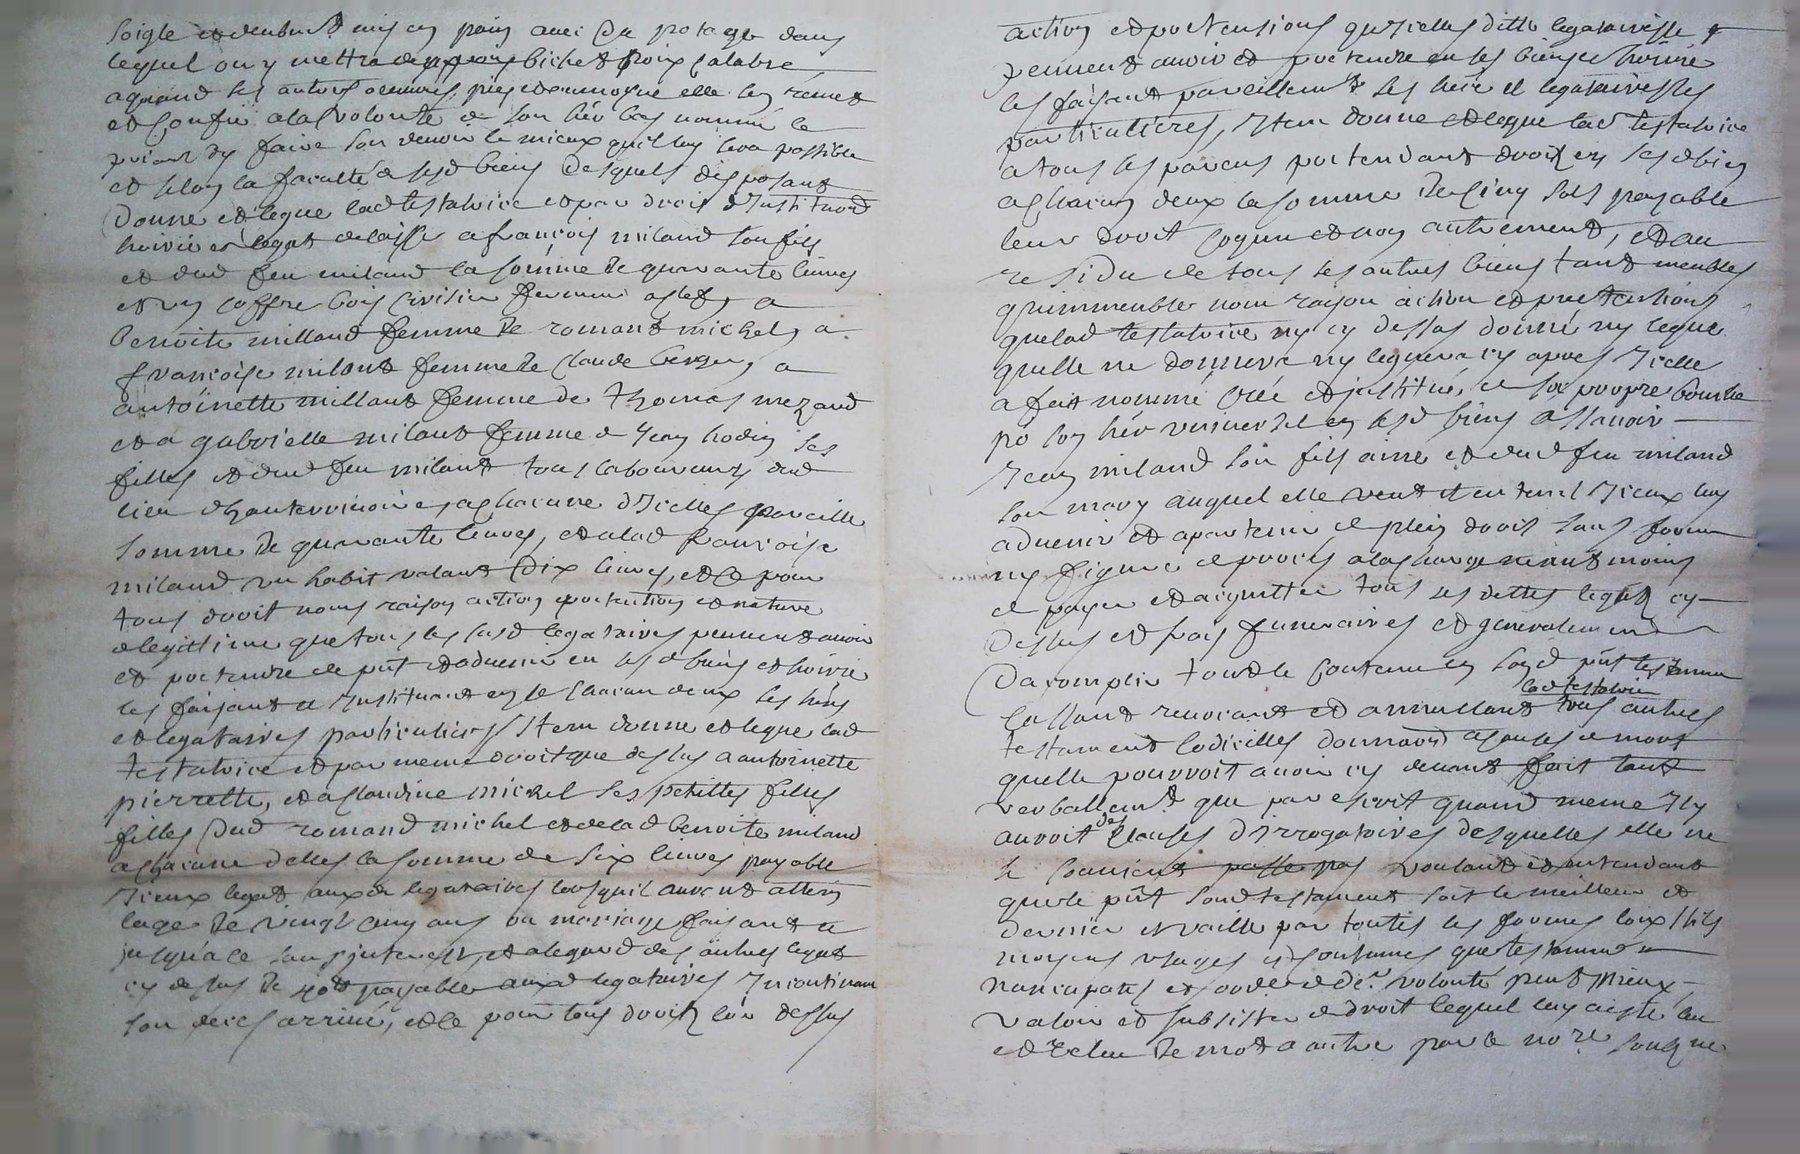 soigle et deub mis en pain avec du potage dans
lequel on y mettra bichet
a quand les autres oeuvres pies et aumosne elle les remet
et confie a la volonté de son hér bas nommé le
priant d'y faire son devoir le mieux qu'il luy sera possible
et selon la faculté de sesd biens desquels disposant
donne et legue lad testatrice et par droit d'Institu
hoirie et legat delaisse a françois miland son fils
et dud feu miland la somme de quarante livres
et un coffre bois fermant a clef, a
benoite milland femme de romand michel, a
françoise miland femme de Claude berger, a
antoinette milland femme de thomas mezard
et a gabrielle miland femme de Jean hodin ses
filles et dud feu miland tous laboureurs dud
lieu d'hauterivoire a chacune d'Icelles pareille
somme de quarante livres, et a lad françoise
miland un habit valant dix livres, et ce pour
tous droit noms raison action pretention et nature
de legittime que tous les susd legataires peuvent avoir
et pretendre de pñt et advenir en sesd biens et hoirie
les faisant et Instituant en ce chacun deux ses hérs
et legataires particuliers Item donne et legue lad
testatrice et par meme droit que dessus a antoinette
pierrette, et a claudine michel ses petittes filles
filles dud romand michel et de lad benoite miland
a chacune d'elles la somme de six livres payable
Iceux legat auxd legataires lorsquil auront atteint
lage de vingt cinq ans ou mariage faisant et
jusqu'a ce sans jnterest, et alegard des autres legat
cy dessus de 40ˡˡ payable auxd legataires Incontinant
son deces arrivé, et ce pour tous droit, con dessus
action et pretensions qu'Icelles ditte legatairesse
peuvent avoir et pretendre en ses biens et hoirie
les faisant pareillemt ses hér et legatairesses
particulieres, Item donne et legue lad testatrice
a tous ses parens pretendant droit en sesd bien
a chacun deux la somme de cinq sols payable
leur droit conu et non autrement, et au
residu de tous ses autres biens tant meubles
qu'immeubles nom raison action et pretentions
que lad testatrice n'y cy dessus donné ny legué
quelle ne donnera ny leguera cy apres Icelle
a fait nommé créé et institué, de sa propre bouche
po son hér universel en sesd biens assavoir
Jean miland son fils ainé et dud feu miland
son mary auquel elle veut et entend Iceux luy
advenir et apartenir de plein droit sans forme
ny figure de proces a la charge neantmoins
de payer et acquitter tous ses dettes legat cy
dessus et frais funeraires et generalement
d'acomplir tout le contenu en sond pñt testamen
lad testatrice
cassant revocant et annullant tous autres
testament codicilles donnaõn a cause de mort
quelle pourroit avoir cy devant fait tant
verballemt que par escrit quand meme Il y
auroit des clauses dirrogatoires desquelles elle ne
se souvient passe pas voulant et entendant
que le pñt sond testament soit le meilleur et
dernier et vaille par toutes les formes loix stils
moyens usages et coutumes que testament
nuncupatif et ordce de dere volonté peut mieux
valoir et subsister de droit lequel luy a esté leu
et releu de mot a autre par le nore soubzne